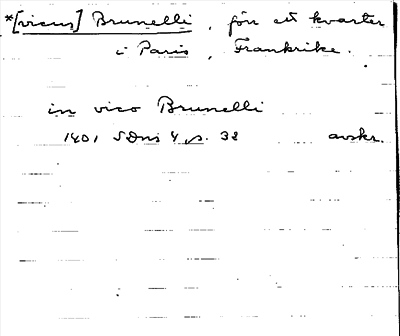 *[vicus] Brunelli, förr ett kvarter
i Paris, Frankrike.
in vico Brunelli
1401 SDns 4, s. 32 avskr.